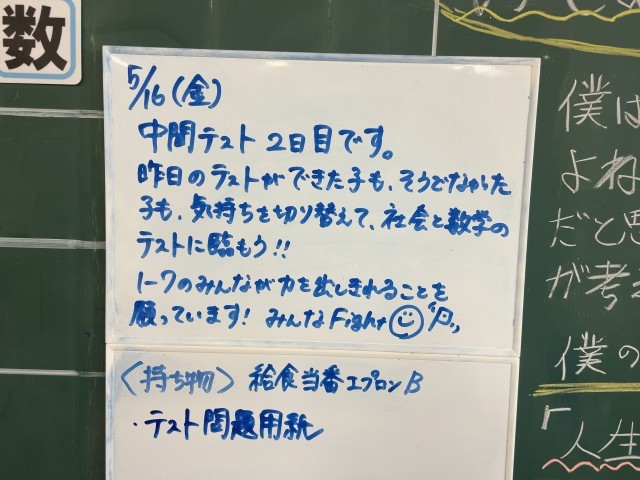 数
5/16(金)
中間テスト 2日目です。
昨日のテストができた子も、そうでなかった
子も、気持ちを切り替えて、社会と数学の
テストに臨もう!!
1-7のみんなが力を出しきれることを
願っています! みんなFight
〈持ち物〉 給食当番エプロンB
・テスト問題用紙
僕は
よね
だと思
が考
僕の
「人生